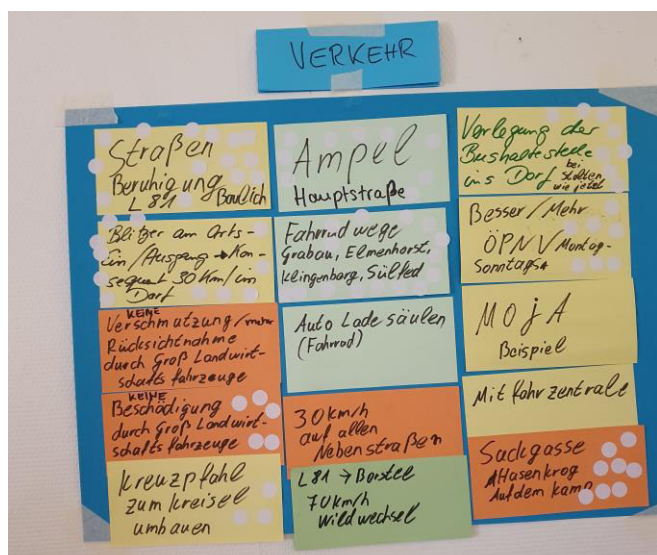 VERKEHR
Straßen
Beruhigung
L81 Baulich
Blitzer am Orts-
Ein/Ausgang → Kon-
sequent 30 Km/im
Dorf
KEINE
Verschmutzung/mehr
Rücksichtnahme
durch Groß Landwirt-
schafts fahrzeuge
KEINE
Beschädigung
durch Groß Landwirt-
schafts fahrzeuge
Kreuzpfahl
zum Kreisel
umbauen
Ampel
Hauptstraße
Fahrrad wege
Grabau, Elmenhorst,
Klingenberg, Sülfed
Auto Lade säulen
(Fahrrad)
30 km/h
auf allen
Nebenstraßen
L81 → Borstel
70 km/h
Wildwechsel
Verlegung der
Bushaltestelle
ins Dorf bei
wie jetzt
Besser/Mehr
ÖPNV/Montag-
Sonntags
MOjA
Beispiel
Mit fahr zentrale
Sackgasse
Hasenkrog
Auf dem Kamp